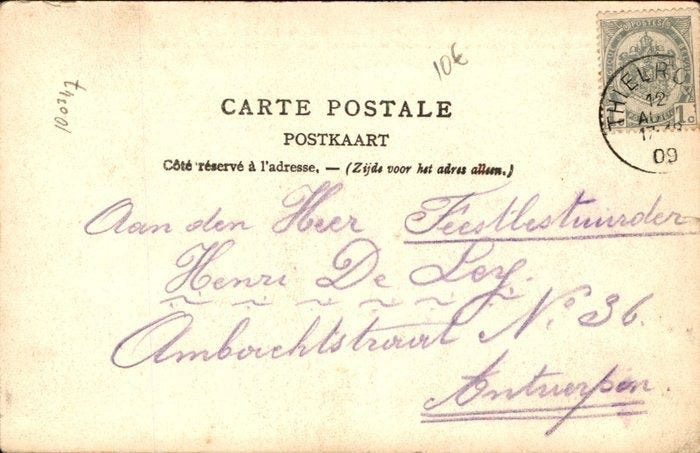 10€
100347
POSTES
THIELRO
12
AU
17-18
09
1c
CARTE POSTALE
POSTKAART
Côté réservé à l'adresse. — (Zijde voor het adres alleen.)
Aan den Heer Feestbestuurder
Henri De Ley.
Ambachtstraat No 36.
Antwerpen.